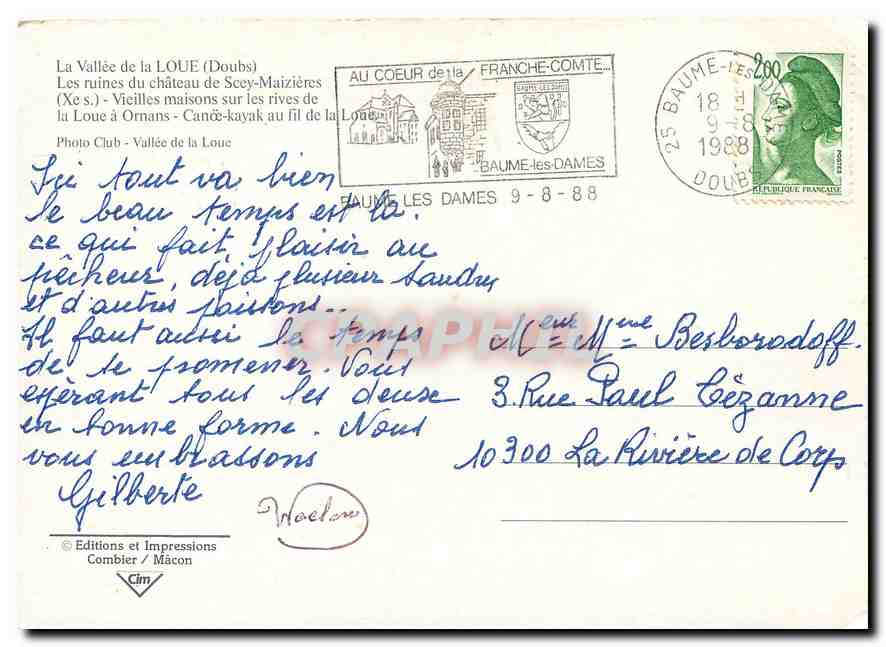 La Vallée de la LOUE (Doubs)
Les ruines du château de Scey-Maizières
(Xe s.) - Vieilles maisons sur les rives de
la Loue à Ornans - Canöe-kayak au fil de la Loue.
Photo Club - Vallée de la Loue
AU COEUR de la FRANCHE-COMTE...
BAUME-LES-DAMES
BAUME-les-DAMES
BAUME LES DAMES 9-8-88
25 BAUME-LES-DAMES
18 H
9-8
1988
DOUBS
2,00
POSTES
REPUBLIQUE FRANÇAISE
Ici tout va bien
le beau temps est là.
ce qui fait plaisir au
pêcheur, déjà plusieur Sandres
et d'autres poissons..
Il faut aussi le temps
de se promener. Vous
espérant tous les deuse
en bonne forme. Nous
vous embrassons
Gilberte
Waclaw
Meur = Mme = Besborodoff.
3. Rue Paul Cézanne
10300 La Rivière de Corps
© Editions et Impressions
Combier / Mâcon
Cim
CPAPHIL